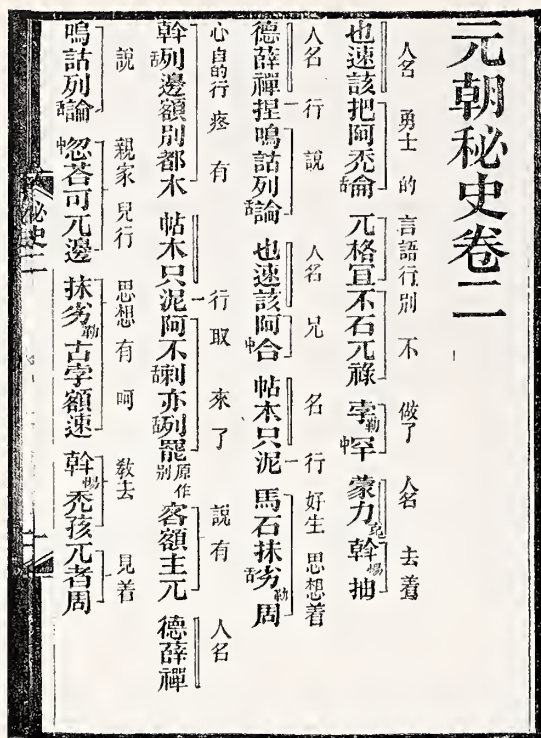 元朝秘史卷二
人名 勇士 的 言語行 別 不 做了 人名 去着
也速該把阿禿舌侖 兀格宜不石兀祿 孛勒中罕 蒙力克斡惕抽
人名 行 說 人名 兄 名 行 好生 思想着
德薛禪捏嗚詁列舌論 也速該阿中合 帖木只泥 馬石抹舌劣勒周
心自的行 疼 有 行 取 來了 說 有 人名
斡舌列邊額別都木 帖木只泥阿不舌剌亦舌列罷原作別 客額主兀 德薛禪
說 親家 兒行 思想 有 呵 教去 見着
嗚詁列舌論 中忽荅可兀邊 抹劣勒古孛額速 斡惕禿孩兀者周
秘史二